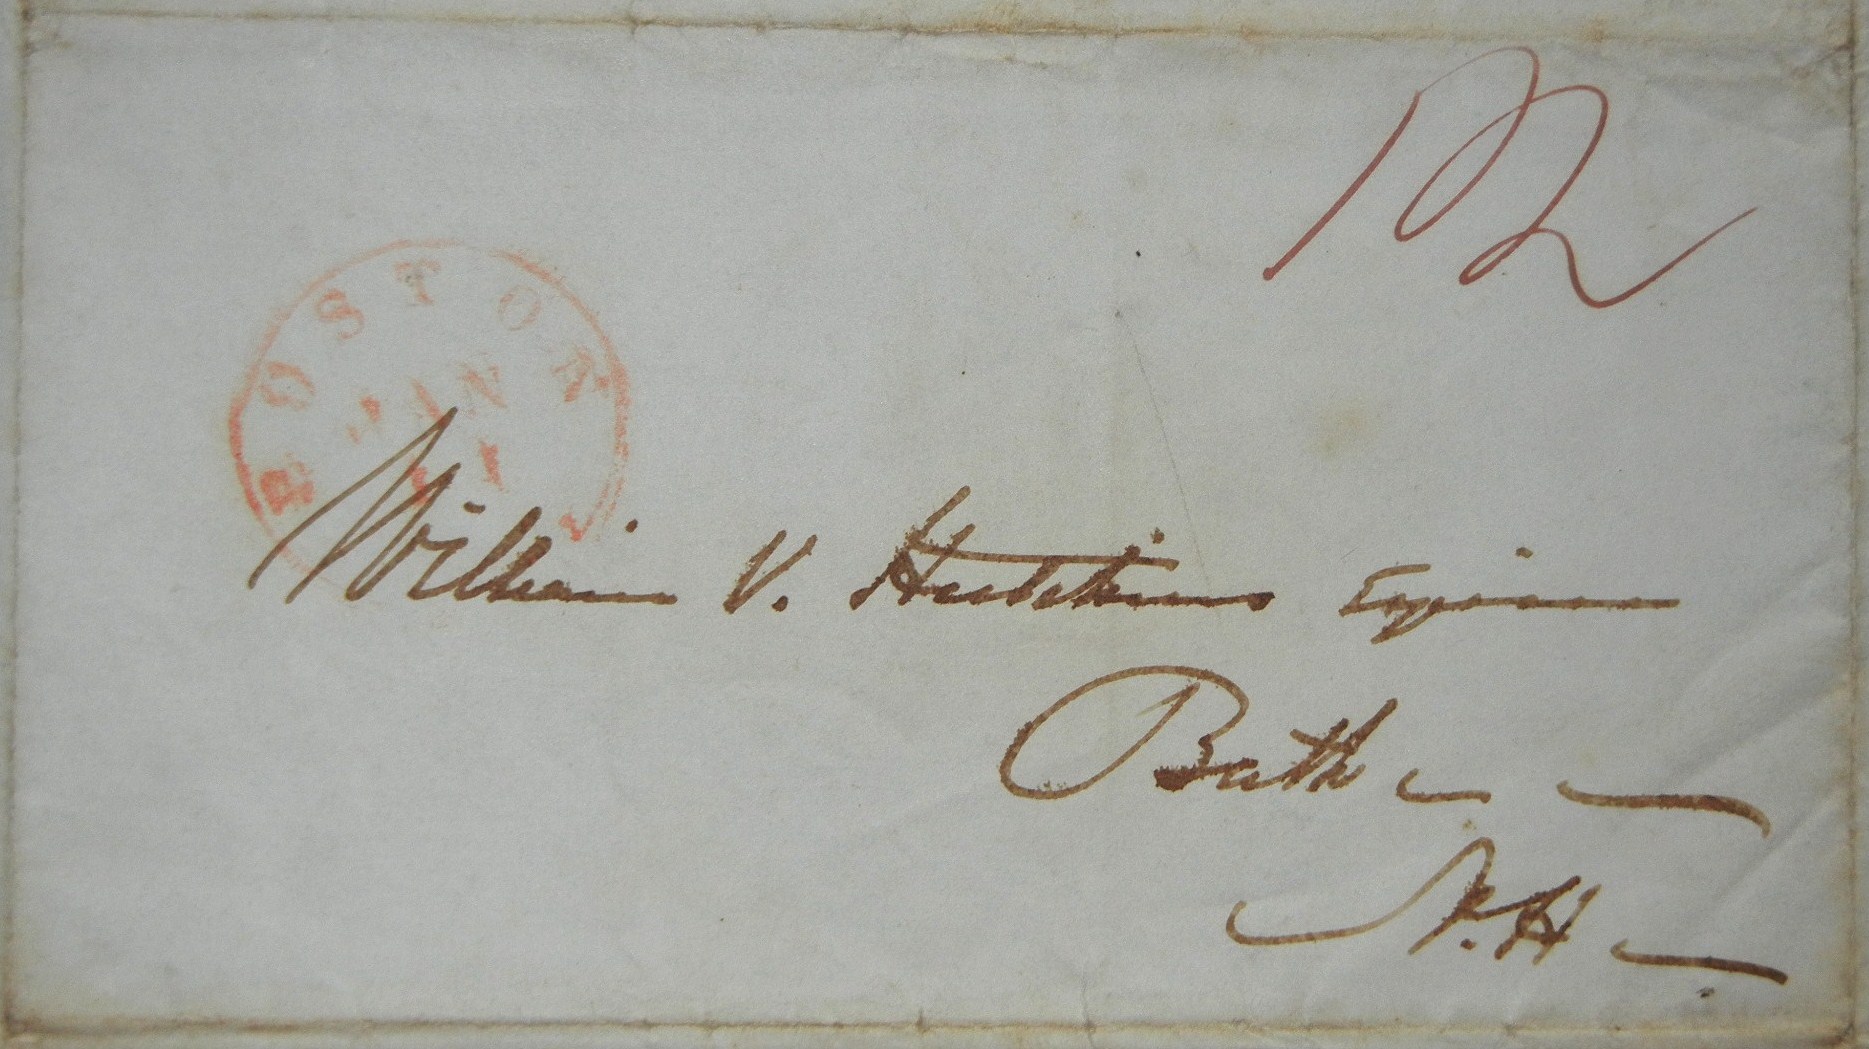 BOSTON
JAN
11
William V. Hutchins Esquire
Bath
N.H